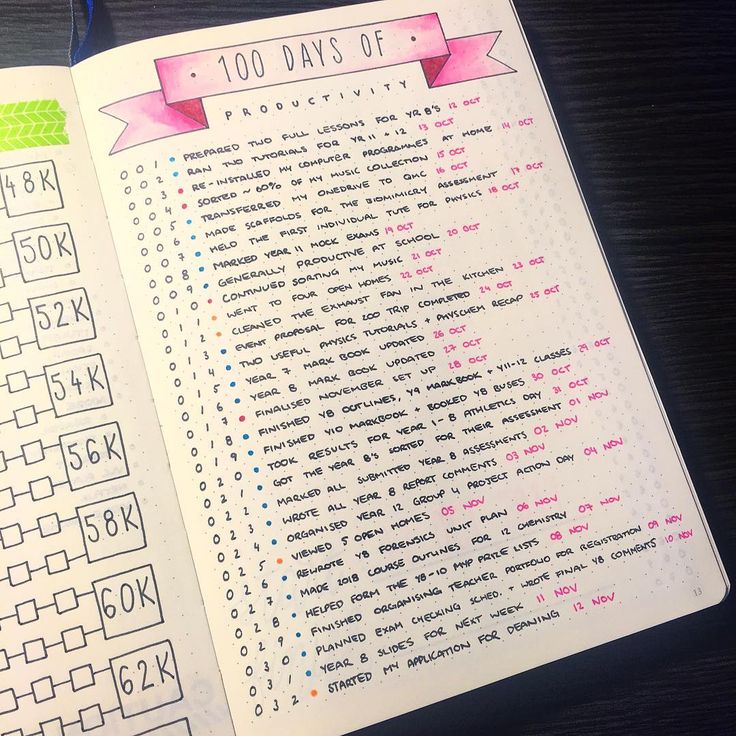 48K
50K
52K
54K
56K
58K
60K
62K
· 100 DAYS OF ·
PRODUCTIVITY
001 • PREPARED TWO FULL LESSONS FOR YR 8'S 12 OCT
002 • RAN TWO TUTORIALS FOR YR 11 + 12 13 OCT
003 • RE-INSTALLED MY COMPUTER PROGRAMMES AT HOME 14 OCT
004 • SORTED ~60% OF MY MUSIC COLLECTION 15 OCT
005 • TRANSFERRED MY ONEDRIVE TO QMC 16 OCT
006 • MADE SCAFFOLDS FOR THE BIOMIMICRY ASSESSMENT 17 OCT
007 • HELD THE FIRST INDIVIDUAL TUTE FOR PHYSICS 18 OCT
008 • MARKED YEAR 11 MOCK EXAMS 19 OCT
009 • GENERALLY PRODUCTIVE AT SCHOOL 20 OCT
010 • CONTINUED SORTING MY MUSIC 21 OCT
011 • WENT TO FOUR OPEN HOMES 22 OCT
012 • CLEANED THE EXHAUST FAN IN THE KITCHEN 23 OCT
013 • EVENT PROPOSAL FOR ZOO TRIP COMPLETED 24 OCT
014 • TWO USEFUL PHYSICS TUTORIALS + PHYSCHEM RECAP 25 OCT
015 • YEAR 7 MARK BOOK UPDATED 26 OCT
016 • YEAR 8 MARK BOOK UPDATED 27 OCT
017 • FINALISED NOVEMBER SET UP 28 OCT
018 • FINISHED Y8 OUTLINES, Y9 MARKBOOK + Y11-12 CLASSES 29 OCT
019 • FINISHED Y10 MARKBOOK + BOOKED Y8 BUSES 30 OCT
020 • TOOK RESULTS FOR YEAR 1-8 ATHLETICS DAY 31 OCT
021 • GOT THE YEAR 8'S SORTED FOR THEIR ASSESSMENT 01 NOV
022 • MARKED ALL SUBMITTED YEAR 8 ASSESSMENTS 02 NOV
023 • WROTE ALL YEAR 8 REPORT COMMENTS 03 NOV
024 • ORGANISED YEAR 12 GROUP 4 PROJECT ACTION DAY 04 NOV
025 • VIEWED 5 OPEN HOMES 05 NOV
026 • REWROTE Y8 FORENSICS UNIT PLAN 06 NOV
027 • MADE 2018 COURSE OUTLINES FOR 12 CHEMISTRY 07 NOV
028 • HELPED FORM THE Y8-10 MYP PRIZE LISTS 08 NOV
029 • FINISHED ORGANISING TEACHER PORTFOLIO FOR REGISTRATION 09 NOV
030 • PLANNED EXAM CHECKING SCHED. + WROTE FINAL Y8 COMMENTS 10 NOV
031 • YEAR 8 SLIDES FOR NEXT WEEK 11 NOV
032 • STARTED MY APPLICATION FOR DEANING 12 NOV
13